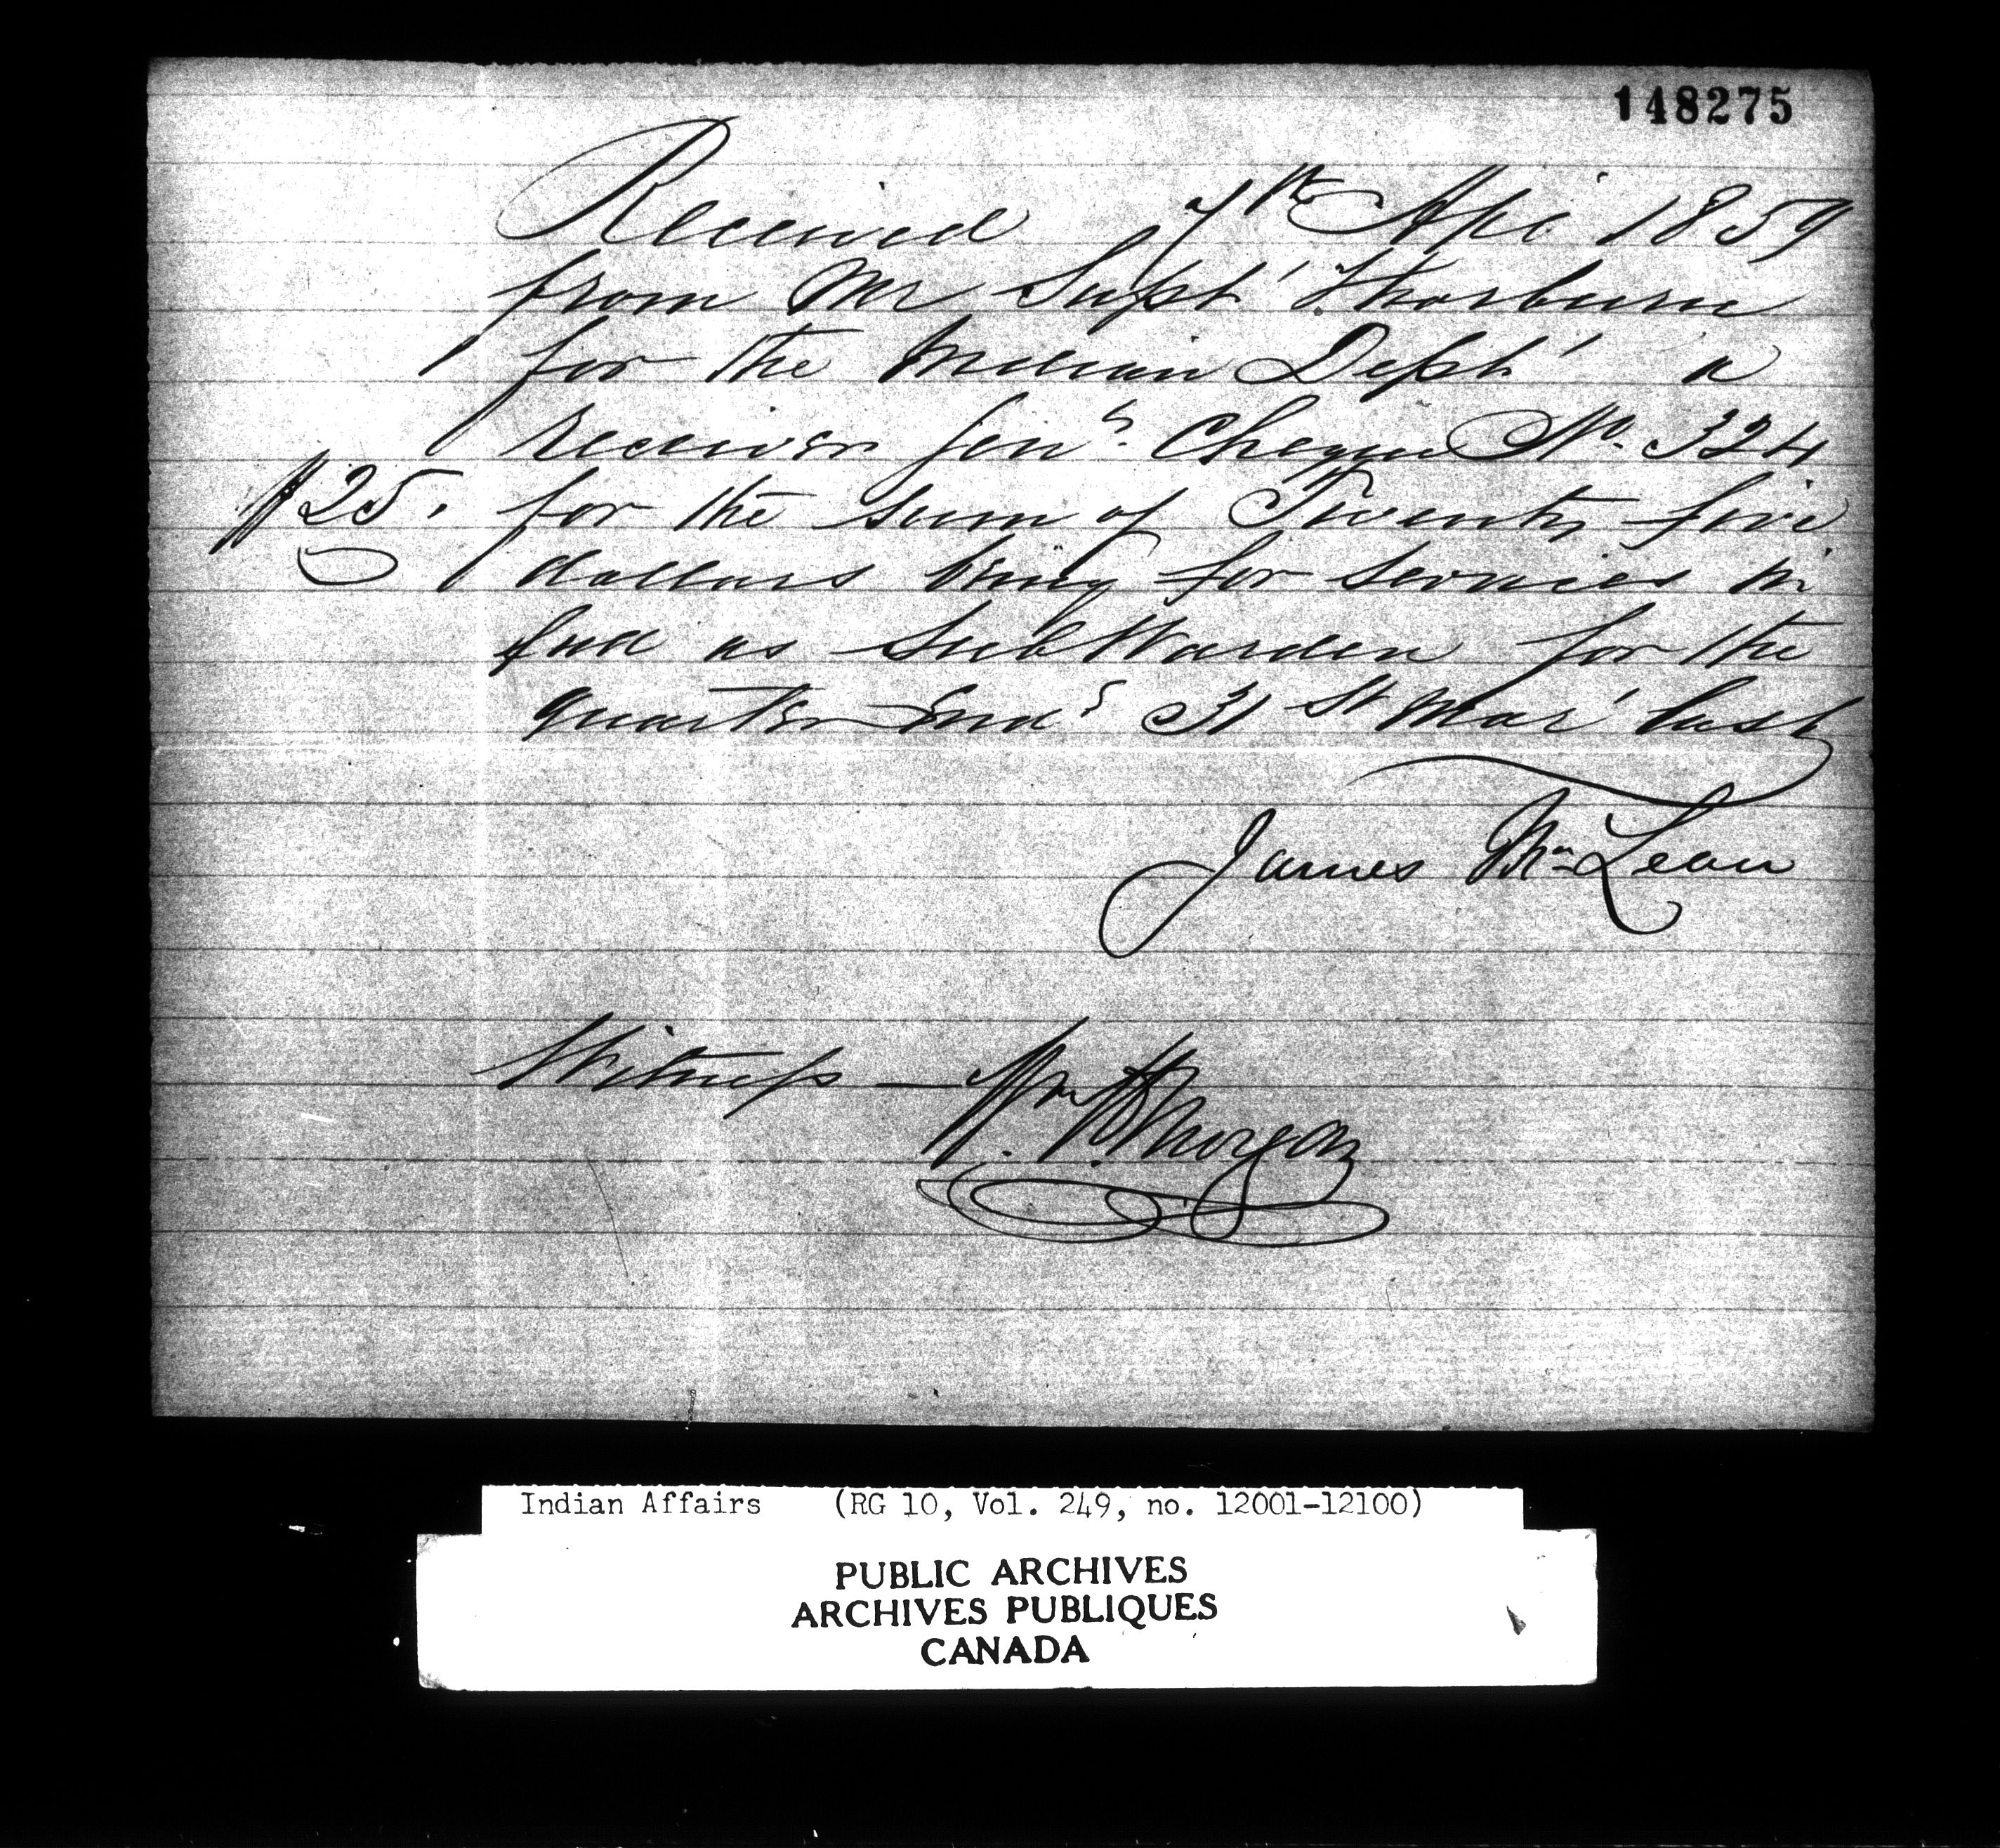 148275
Received 7th Apl 1859
from Mr Supt Thorburn
for the Indian Dept a
receiver Genls Cheque No. 324
$25. for the sum of Twenty five
dollars being for services in
full as Sub Warden for the
quarter Endg 31st Mar last
James McLean
Witness — Wm H. Morgan
Indian Affairs (RG 10, Vol. 249, no. 12001-12100)
PUBLIC ARCHIVES
ARCHIVES PUBLIQUES
CANADA